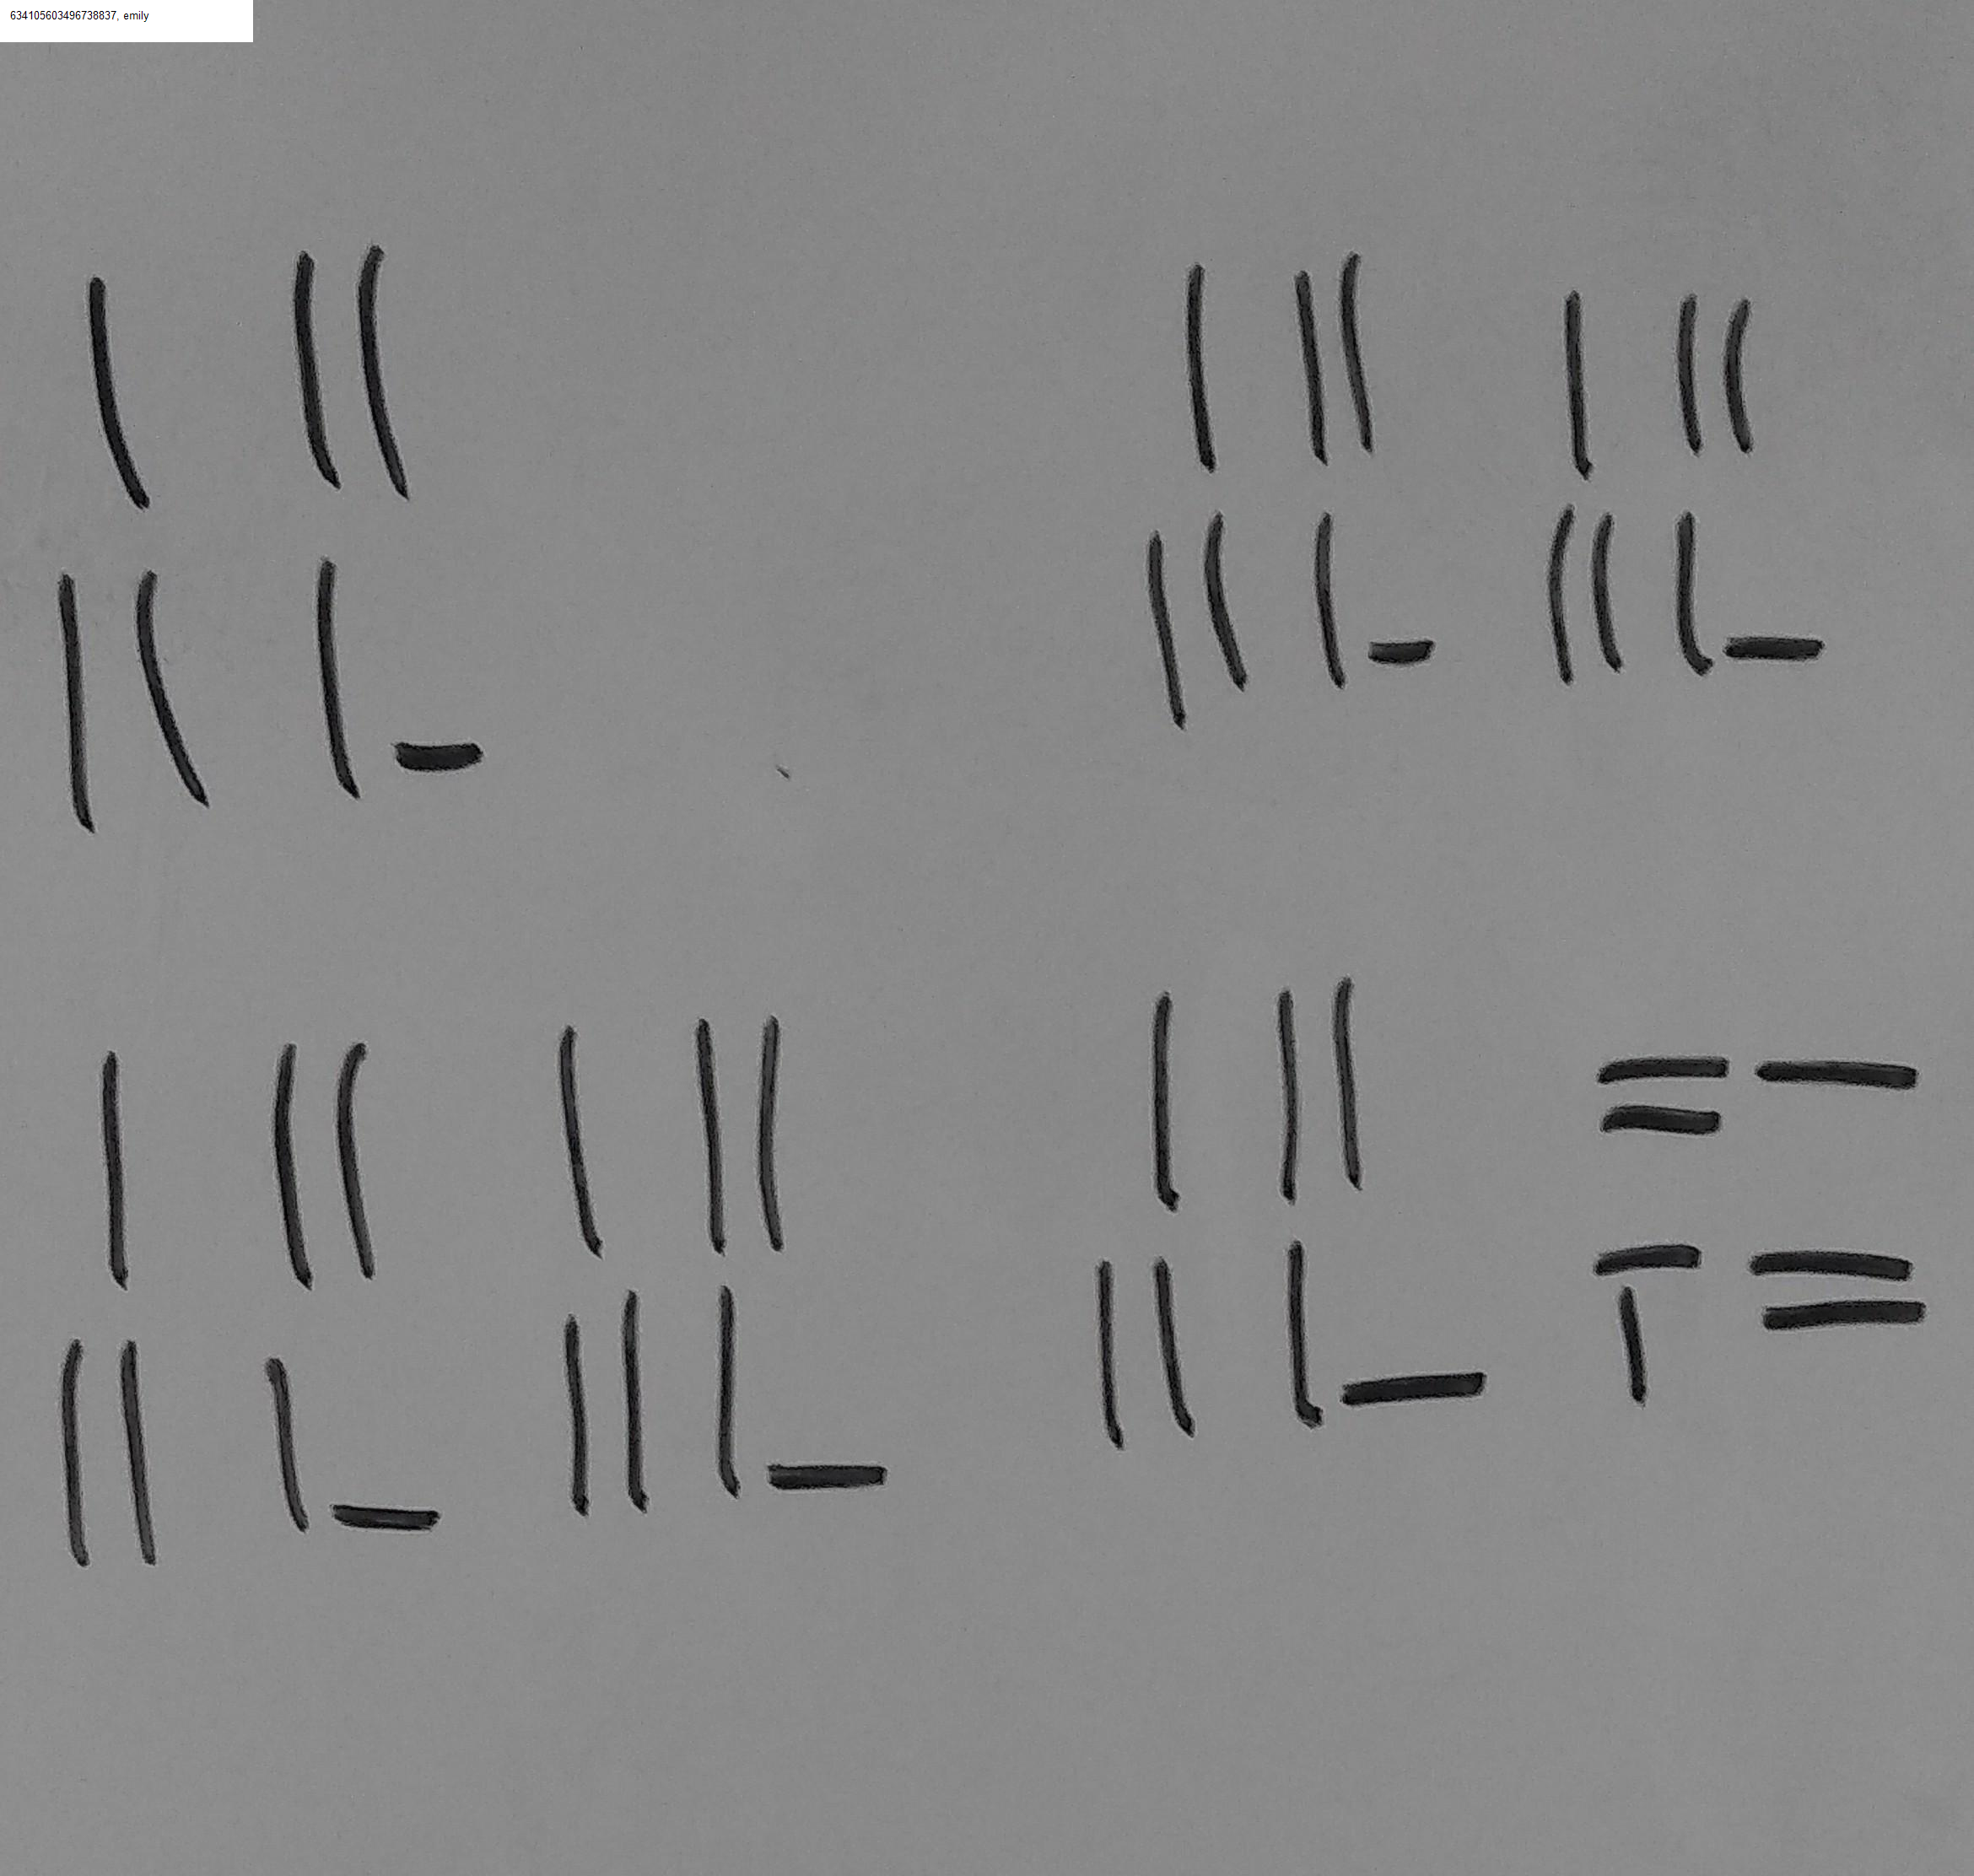 634105603496738837, emily